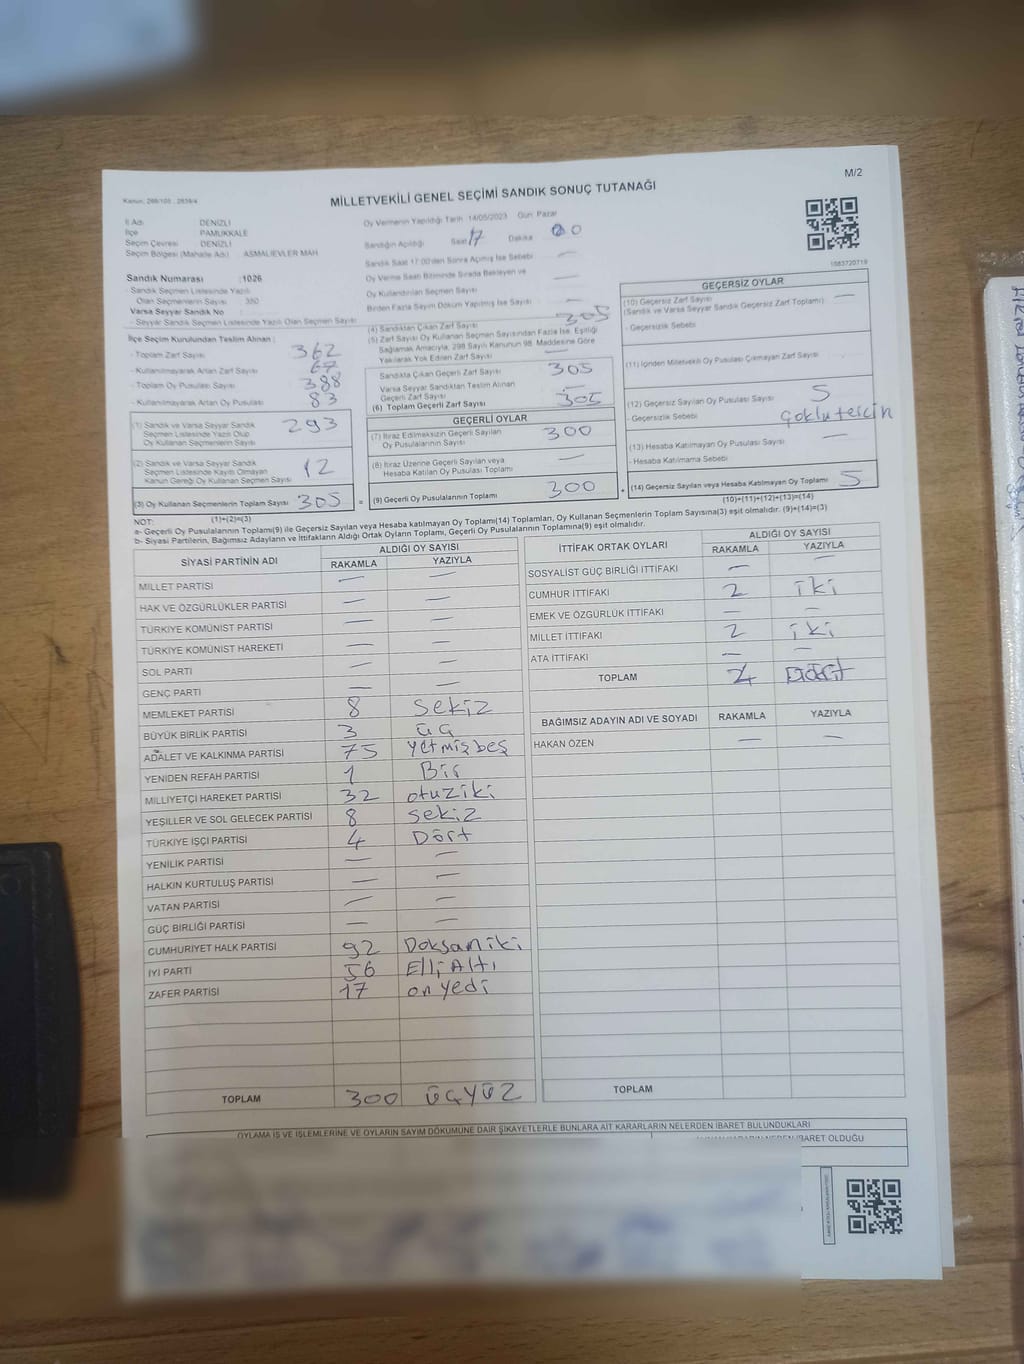 M/2
MİLLETVEKİLİ GENEL SEÇİMİ SANDIK SONUÇ TUTANAĞI
İl Adı DENİZLİ
İlçe PAMUKKALE
Seçim Çevresi DENİZLİ
Seçim Bölgesi (Mahalle Adı) ASMALIEVLER MAH
Sandık Numarası :1026
- Sandık Seçmen Listesinde Yazılı
Olan Seçmenlerin Sayısı : 350
Varsa Seyyar Sandık No
- Seyyar Sandık Seçmen Listesinde Yazılı Olan Seçmen Sayısı
İlçe Seçim Kurulundan Teslim Alınan :
- Toplam Zarf Sayısı 362
- Kullanılmayarak Artan Zarf Sayısı 67
- Toplam Oy Pusulası Sayısı 388
- Kullanılmayarak Artan Oy Pusulası 83
(1) Sandık ve Varsa Seyyar Sandık
Seçmen Listesinde Yazılı Olup
Oy Kullanan Seçmenlerin Sayısı 293
(2) Sandık ve Varsa Seyyar Sandık
Seçmen Listesinde Kayıtlı Olmayan
Kanun Gereği Oy Kullanan Seçmen Sayısı 12
(3) Oy Kullanan Seçmenlerin Toplam Sayısı 305
(1)+(2)=(3)
Oy Vermenin Yapıldığı Tarih 14/05/2023 Gün: Pazar
Sandığın Açıldığı Saat 17 Dakika 00
Sandık Saat 17:00'den Sonra Açılmış İse Sebebi —
Oy Verme Saati Bitiminde Sırada Bekleyen ve
Oy Kullandırılan Seçmen Sayısı —
Birden Fazla Sayım Döküm Yapılmış İse Sayısı —
(4) Sandıktan Çıkan Zarf Sayısı 305
(5) Zarf Sayısı Oy Kullanan Seçmen Sayısından Fazla İse, Eşitliği
Sağlamak Amacıyla, 298 Sayılı Kanunun 98. Maddesine Göre
Yakılarak Yok Edilen Zarf Sayısı —
Sandıkta Çıkan Geçerli Zarf Sayısı 305
Varsa Seyyar Sandıktan Teslim Alınan
Geçerli Zarf Sayısı —
(6) Toplam Geçerli Zarf Sayısı 305
GEÇERLİ OYLAR
(7) İtiraz Edilmeksizin Geçerli Sayılan
Oy Pusulalarının Sayısı 300
(8) İtiraz Üzerine Geçerli Sayılan veya
Hesaba Katılan Oy Pusulası Toplamı —
(9) Geçerli Oy Pusulalarının Toplamı 300
1683720719
GEÇERSİZ OYLAR
(10) Geçersiz Zarf Sayısı
(Sandık ve Varsa Seyyar Sandık Geçersiz Zarf Toplamı) —
- Geçersizlik Sebebi
(11) İçinden Milletvekili Oy Pusulası Çıkmayan Zarf Sayısı
(12) Geçersiz Sayılan Oy Pusulası Sayısı 5
- Geçersizlik Sebebi çoklu tercin
(13) Hesaba Katılmayan Oy Pusulası Sayısı —
- Hesaba Katılmama Sebebi
(14) Geçersiz Sayılan veya Hesaba Katılmayan Oy Toplamı 5
(10)+(11)+(12)+(13)=(14)
NOT:
a- Geçerli Oy Pusulalarının Toplamı(9) ile Geçersiz Sayılan veya Hesaba katılmayan Oy Toplamı(14) Toplamları, Oy Kullanan Seçmenlerin Toplam Sayısına(3) eşit olmalıdır. (9)+(14)=(3)
b- Siyasi Partilerin, Bağımsız Adayların ve İttifakların Aldığı Ortak Oyların Toplamı, Geçerli Oy Pusulalarının Toplamına(9) eşit olmalıdır.
SİYASİ PARTİNİN ADI ALDIĞI OY SAYISI
RAKAMLA YAZIYLA
MİLLET PARTİSİ — —
HAK VE ÖZGÜRLÜKLER PARTİSİ — —
TÜRKİYE KOMÜNİST PARTİSİ — —
TÜRKİYE KOMÜNİST HAREKETİ — —
SOL PARTİ — —
GENÇ PARTİ — —
MEMLEKET PARTİSİ 8 Sekiz
BÜYÜK BİRLİK PARTİSİ 3 üç
ADALET VE KALKINMA PARTİSİ 75 yetmişbeş
YENİDEN REFAH PARTİSİ 1 Bir
MİLLİYETÇİ HAREKET PARTİSİ 32 otuziki
YEŞİLLER VE SOL GELECEK PARTİSİ 8 sekiz
TÜRKİYE İŞÇİ PARTİSİ 4 Dört
YENİLİK PARTİSİ — —
HALKIN KURTULUŞ PARTİSİ — —
VATAN PARTİSİ — —
GÜÇ BİRLİĞİ PARTİSİ — —
CUMHURİYET HALK PARTİSİ 92 Doksaniki
İYİ PARTİ 56 Elli Altı
ZAFER PARTİSİ 17 on yedi
TOPLAM 300 üçyüz
İTTİFAK ORTAK OYLARI ALDIĞI OY SAYISI
RAKAMLA YAZIYLA
SOSYALİST GÜÇ BİRLİĞİ İTTİFAKI — —
CUMHUR İTTİFAKI 2 iki
EMEK VE ÖZGÜRLÜK İTTİFAKI — —
MİLLET İTTİFAKI 2 iki
ATA İTTİFAKI — —
TOPLAM 4 Dört
BAĞIMSIZ ADAYIN ADI VE SOYADI RAKAMLA YAZIYLA
HAKAN ÖZEN — —
TOPLAM
OYLAMA İŞ VE İŞLEMLERİNE VE OYLARIN SAYIM DÖKÜMÜNE DAİR ŞİKAYETLERLE BUNLARA AİT KARARLARIN NELERDEN İBARET BULUNDUKLARI
İBARET OLDUĞU